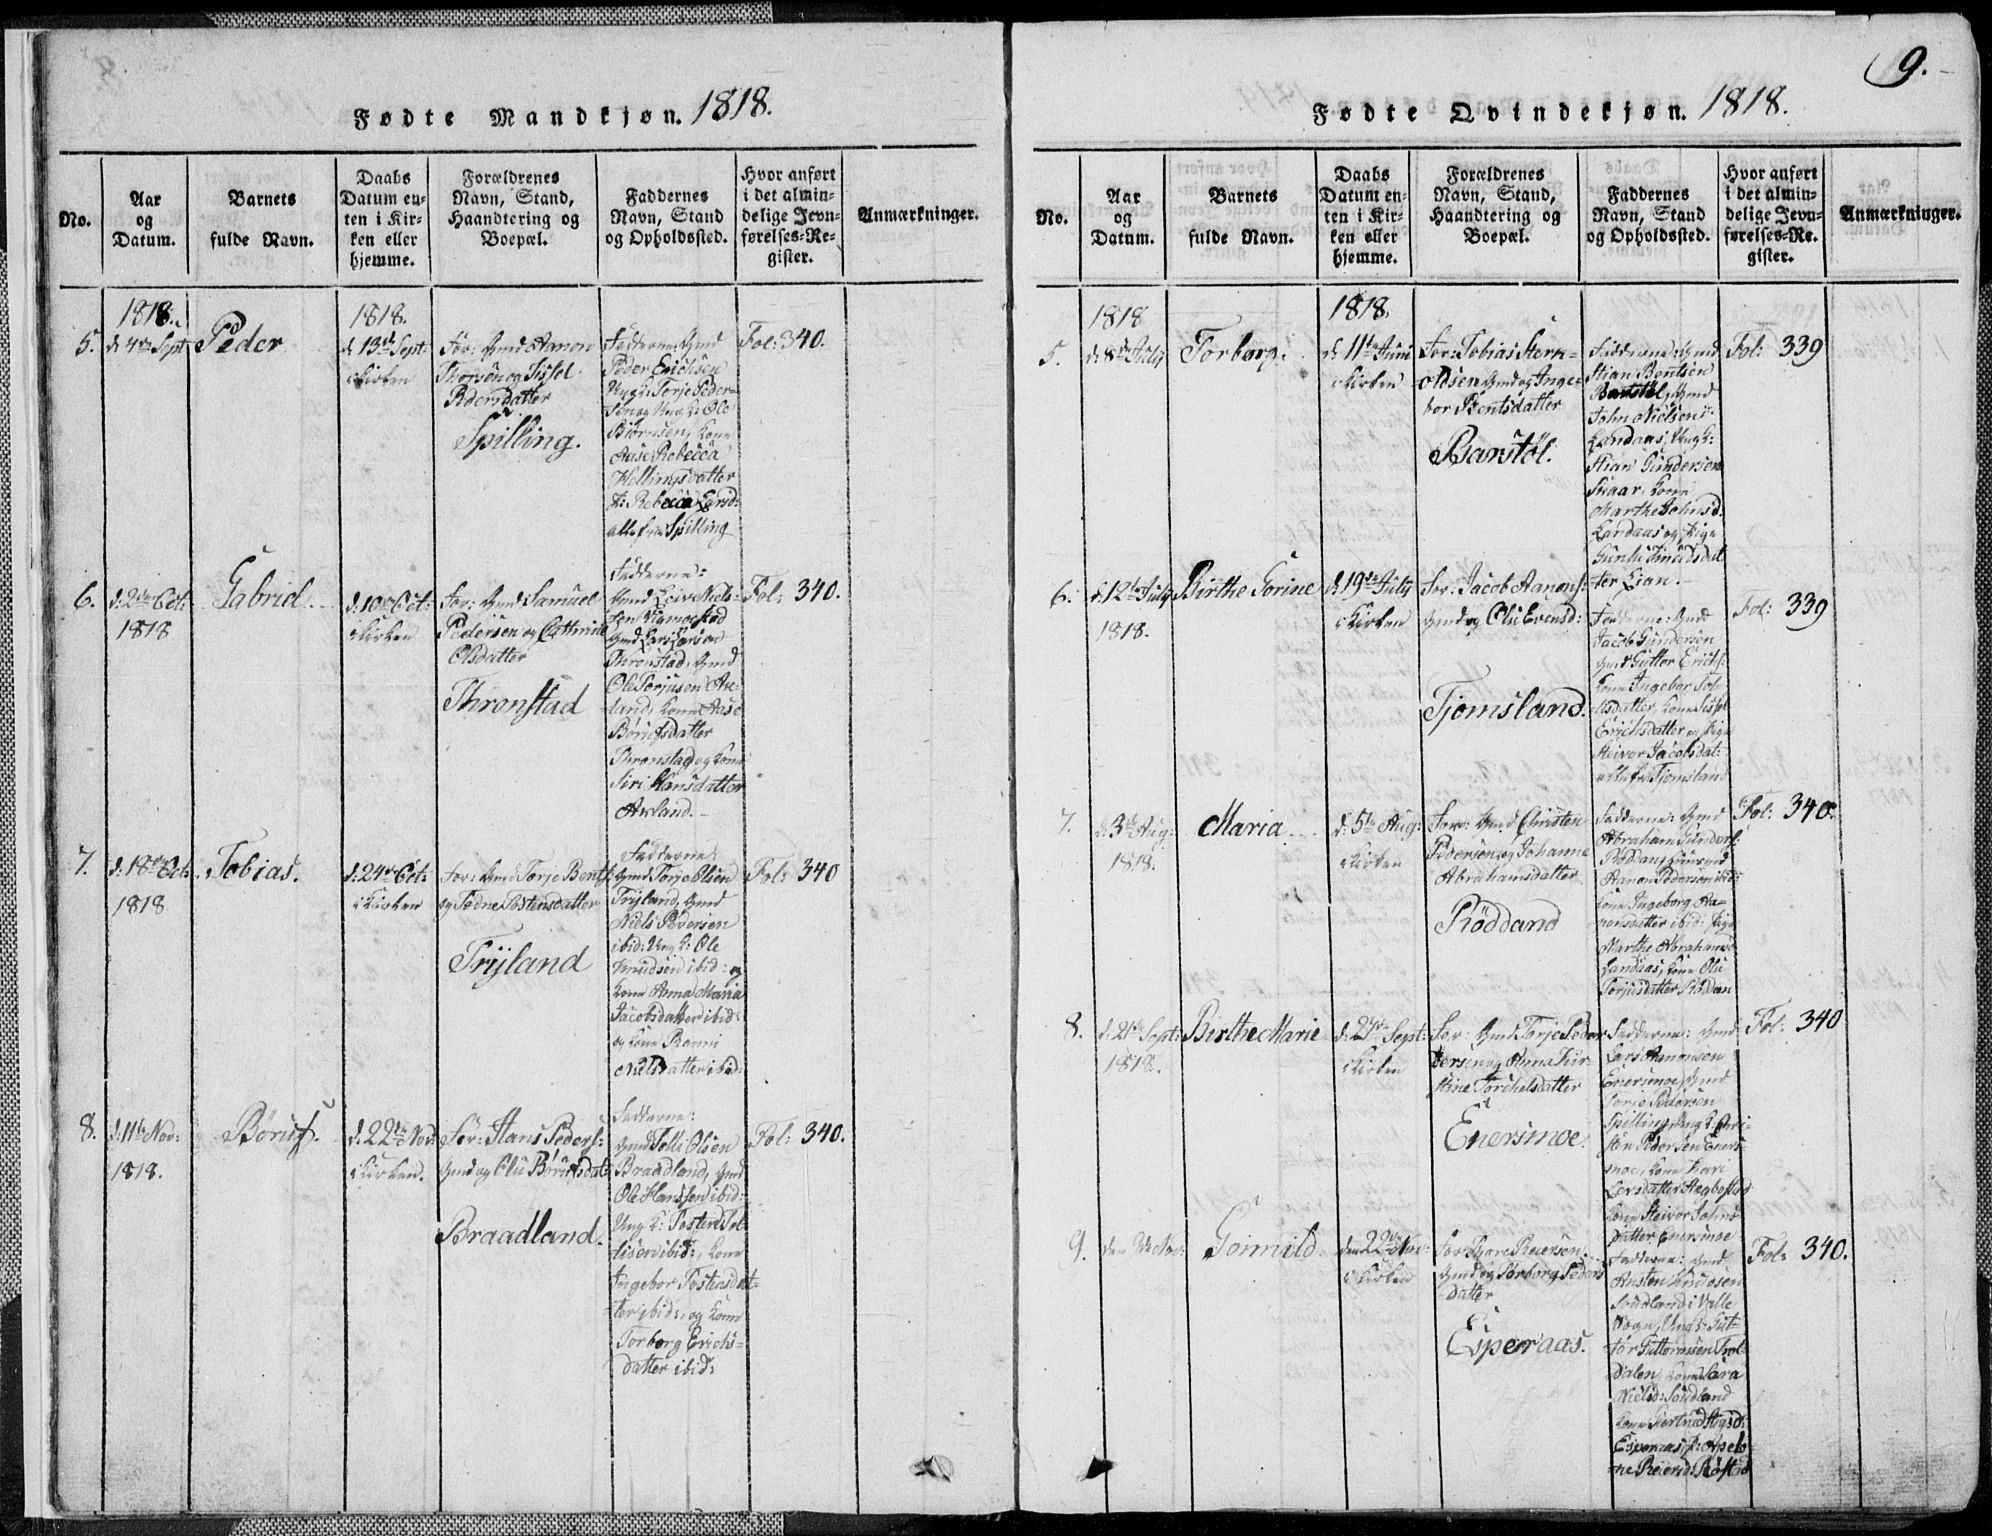 9.
Fødte Mandkjøn. 1818.
No.
Aar og Datum.
Barnets fulde Navn.
Daabs Datum enten i Kirken eller hjemme.
Forældrenes Navn, Stand, Haandtering og Boepæl.
Faddernes Navn, Stand og Opholdssted.
Hvor anført i det almindelige Jevnførelses-Register.
Anmærkninger.
1818.
5.
d: 4de Sept
Peder
1818.
d 13de Sept:
i Kirken
For: Gmd Aanon
Thorsen og Sissel
Pedersdatter
Spilling.
Fadderne: Gmd
Peder Erichsen
Ung K: Terje Peder-
sen og Ung K: Ole
Biørnsen, Kone
Aase Rebecca
Hellingsdatter
P: Rebecca Larsd:
alle fra Spilling
Fol: 340.
6.
d: 2den Oct:
1818
Gabriel.
d: 10de Oct:
i Kirken
For: Gmd Samuel
Pedersen og Cathrine
Olsdatter
Thronstad
Fadderne:
Gmd Leiv Niels-
sen
Gmd Lars Larsen
Thronstad, Gmd
Ole Torjusen
land, Kone Aase
Børufsdatter
Thronstad og Kone
Siri Hansdatter
Fol: 340.
7.
d: 18de Oct:
1818
Tobias.
d: 24de Oct:
i Kirken
For: Gmd Torje Bents:
og Todne Tostensdatter
Trÿland
Fadderne:
Gmd Torje Olsen
Trÿland, Gmd
Niels Pedersen
ibid: Ung K: Ole
Knudsen ibid: og
Kone Anna Maria
Jacobsdatter ibid:
og Kone Ranni
Nielsdatter ibid:
Fol: 340
8.
d: 11te Nov:
1818.
Børuf.
d: 22de Nov:
i Kirken.
For: Hans Peders:
Gmd og Olu Børufsdat:
Braadland.
Fadderne:
Gmd Tolli Olsen
Braadland, Gmd
Ole Hanssen ibid:
Ung K: Tosten Tol-
lisen ibid:, Kone
Ingebor Tostensdat-
ter ibid:, og Kone
Torborg Erichs-
datter ibid:
Fol: 340.
Fødte Qvindekjøn. 1818.
No.
Aar og Datum.
Barnets fulde Navn.
Daabs Datum enten i Kirken eller hjemme.
Forældrenes Navn, Stand, Haandtering og Boepæl.
Faddernes Navn, Stand og Opholdssted.
Hvor anført i det almindelige Jevnførelses-Register.
Anmærkninger.
1818
5.
Torborg.
1818.
d: 11te Juni
i Kirken
For: Tobias Stern-
oldsen Gmd og Inge-
bor Bentsdatter
Barstøl.
Fadderne: Gmd
Stian Bentsen
Barstøl, Gmd
John Nielsen
Landaas, Ung K:
Stian Gundersen
Skaar, Kone
Marthe Johnsd:
Landaas og Pige
Gunlu Knudsdat
ter Lian.
Fol: 339
6.
d: 12te July
1818.
Birthe Torine
d: 19de July
i Kirken
For: Jacob Aanons:
Gmd og Olu Evensd:
Tjomsland.
Fadderne: Gmd
Jacob Gundersen
Gmd Guttor Erichs:
Kone Ingebor Tol-
lisdatter, Kone Sissel
Erichsdatter og Pige
Steivor Jacobsdat:
alle fra Tjomsland
Fol: 339
7.
d: 3de Aug:
1818.
Maria
d: 5te Aug:
i Kirken
For: Gmd Christen
Pedersen og Johanne
Abrahamsdatter
Röddand
Fadderne: Gmd
Abraham Gunders:
Aanon Pedersen ibid:
Kone Ingeborg Aa-
nensdatter ibid: Pige
Marthe Abrahamsd
Landaas, Kone Olu
Torjusdatter Röddan
Fol: 340.
8.
d: 21de Sept:
1818.
Birthe Marie
d: 27de Sept:
i Kirken
For: Gmd Torje Peder
dersen og Anna Kir-
stine Torchelsdatter
Enersmoe.
Fadderne: Gmd
Lars Aanonsen
Enersmoe, Gmd
Torje Pedersen
Spilling, Ung K: Chri-
sten Pedersen Eners-
moe, Kone Kari
Larsdatter Hægbostad
Kone Steivor Johns-
datter Enersmoe
Fol: 340
9.
Goimild
den 22de Nov:
i Kirken
For: Thore Reiersen
Gmd og Torborg Peders
datter
Esperaas.
Fadderne: Gmd
Austen Knudsen
Soudland i Valle
Sogn, Ung K: Gut-
tor Guttormsen Trol-
dalen, Kone Sara
Nielsd: Soudland
Kone Gertrud
Esperaas, P:
ne Reiersd:
Fol: 340.